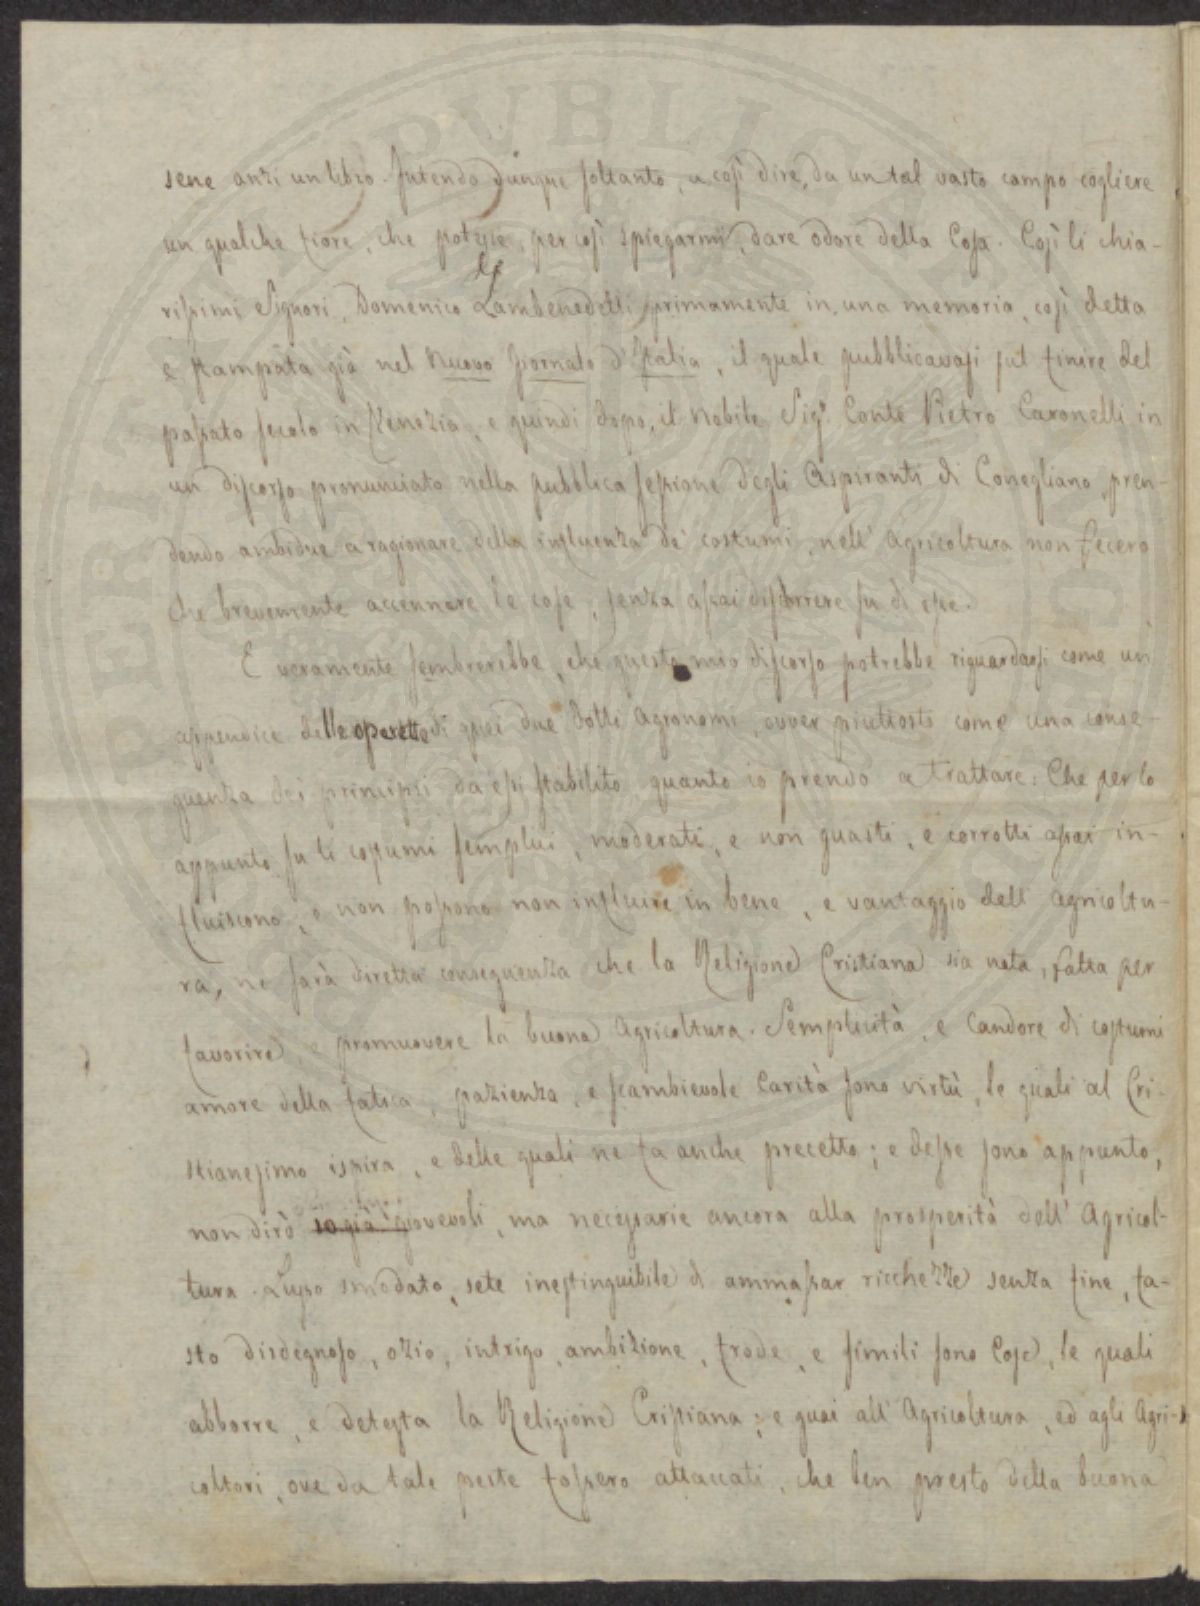 sene anzi un libro. Intendo dunque soltanto, a così dire, da un tal vasto campo cogliere
un qualche fiore, che potesse, per così spiegarmi, dare odore della Cosa. Così li chia-
rissimi Signori, Domenico Lambenedetti primamente in una memoria, così detta
e stampata già nel Nuovo Giornale d'Italia, il quale pubblicavasi sul finire del
passato secolo in Venezia, e quindi dopo, il nobile Sigr. Conte Pietro Caronelli in
un discorso pronunciato nella pubblica sessione degli Aspiranti di Conegliano, pren-
dendo ambidue a ragionare della influenza de' costumi, nell' Agricoltura non fecero
che brevemente accennare le cose, senza assai discorrere su di esse.
E veramente sembrerebbe, che questo mio discorso potrebbe riguardarsi come un
appendice delle operette di quei due dotti Agronomi, ovver piuttosto come una conse-
guenza dei principii da essi stabilito quanto io prendo a trattare: Che per lo
appunto su li costumi semplici, moderati, e non guasti, e corrotti assai in-
fluiscono, e non possono non influire in bene, e vantaggio dell' Agricoltu-
ra, ne sarà diretta conseguenza che la Religione Cristiana sia nata, fatta per
favorire, e promuovere la buona Agricoltura. Semplicità, e Candore di costumi
amore della fatica, pazienza, e scambievole Carità sono virtù, le quali al Cri-
stianesimo ispira, e delle quali ne fa anche precetto; e desse sono appunto,
non dirò io già giovevoli, ma necessarie ancora alla prosperità dell' Agricol-
tura. Lusso smodato, sete inestinguibile di ammassar ricchezze senza fine, fa-
sto disdegnoso, ozio, intrigo, ambizione, frode, e simili sono Cose, le quali
abborre, e detesta la Religione Cristiana; e guai all' Agricoltura, ed agli Agri-
coltori, ove da tale peste fossero attaccati, che ben presto della buona
PUBLICA